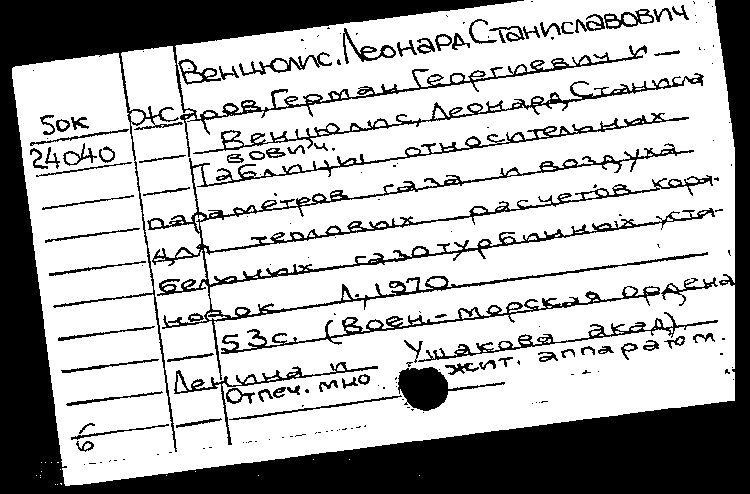 Венцюлис, Леонард Станиславович
50к Жаров, Герман Георгиевич и
24040 Венцюлис, Леонард Станисла
вович.
Таблицы относительных
параметров газа и воздуха
для тепловых расчетов кора-
бельных газотурбинных уста-
новок Л., 1970.
53с. (Воен.-морская ордена
Ленина и Ушакова акад).
Отпеч. множит. аппаратом.
6